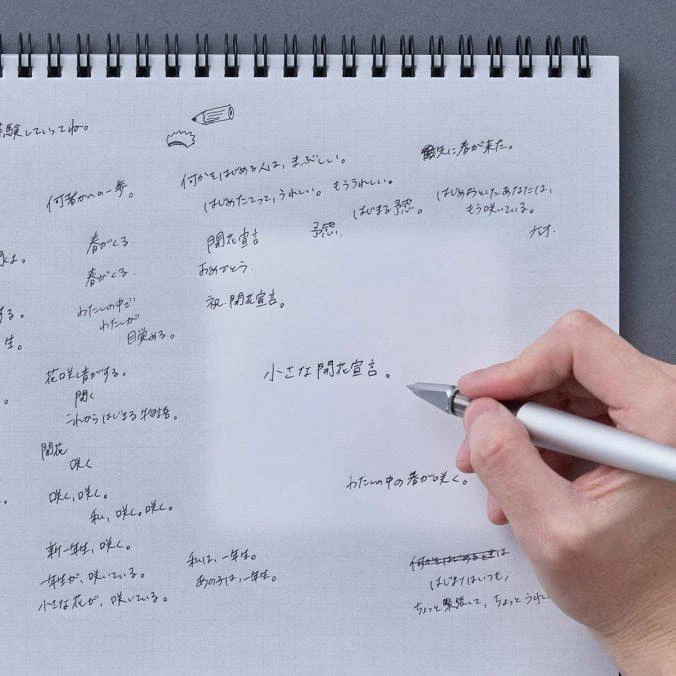 験していってね。
何者かへの一歩。
何かをはじめる人は、まぶしい。
先に春が来た。
はじめたてって、うれしい。もううれしい。
はじまる予感。
はじめようとしたあなたは、
もう咲いている。
春がくる
開花宣言
予感。
春がくる
おめでとう。
祝 開花宣言。
わたしの中で
わたしが
目覚める。
する。
生。
小さな開花宣言。
花咲く音がする。
開く
これからはじまる物語。
開花
咲く
わたしの中の春が咲く。
咲く、咲く。
私、咲く。咲く。
新一年生、咲く。
一年生が、咲いている。
小さな花が、咲いている。
私は、一年生。
あの子は、一年生。
何かをはじめるときは
はじまりはいつも、
ちょっと緊張して、ちょっとうれし